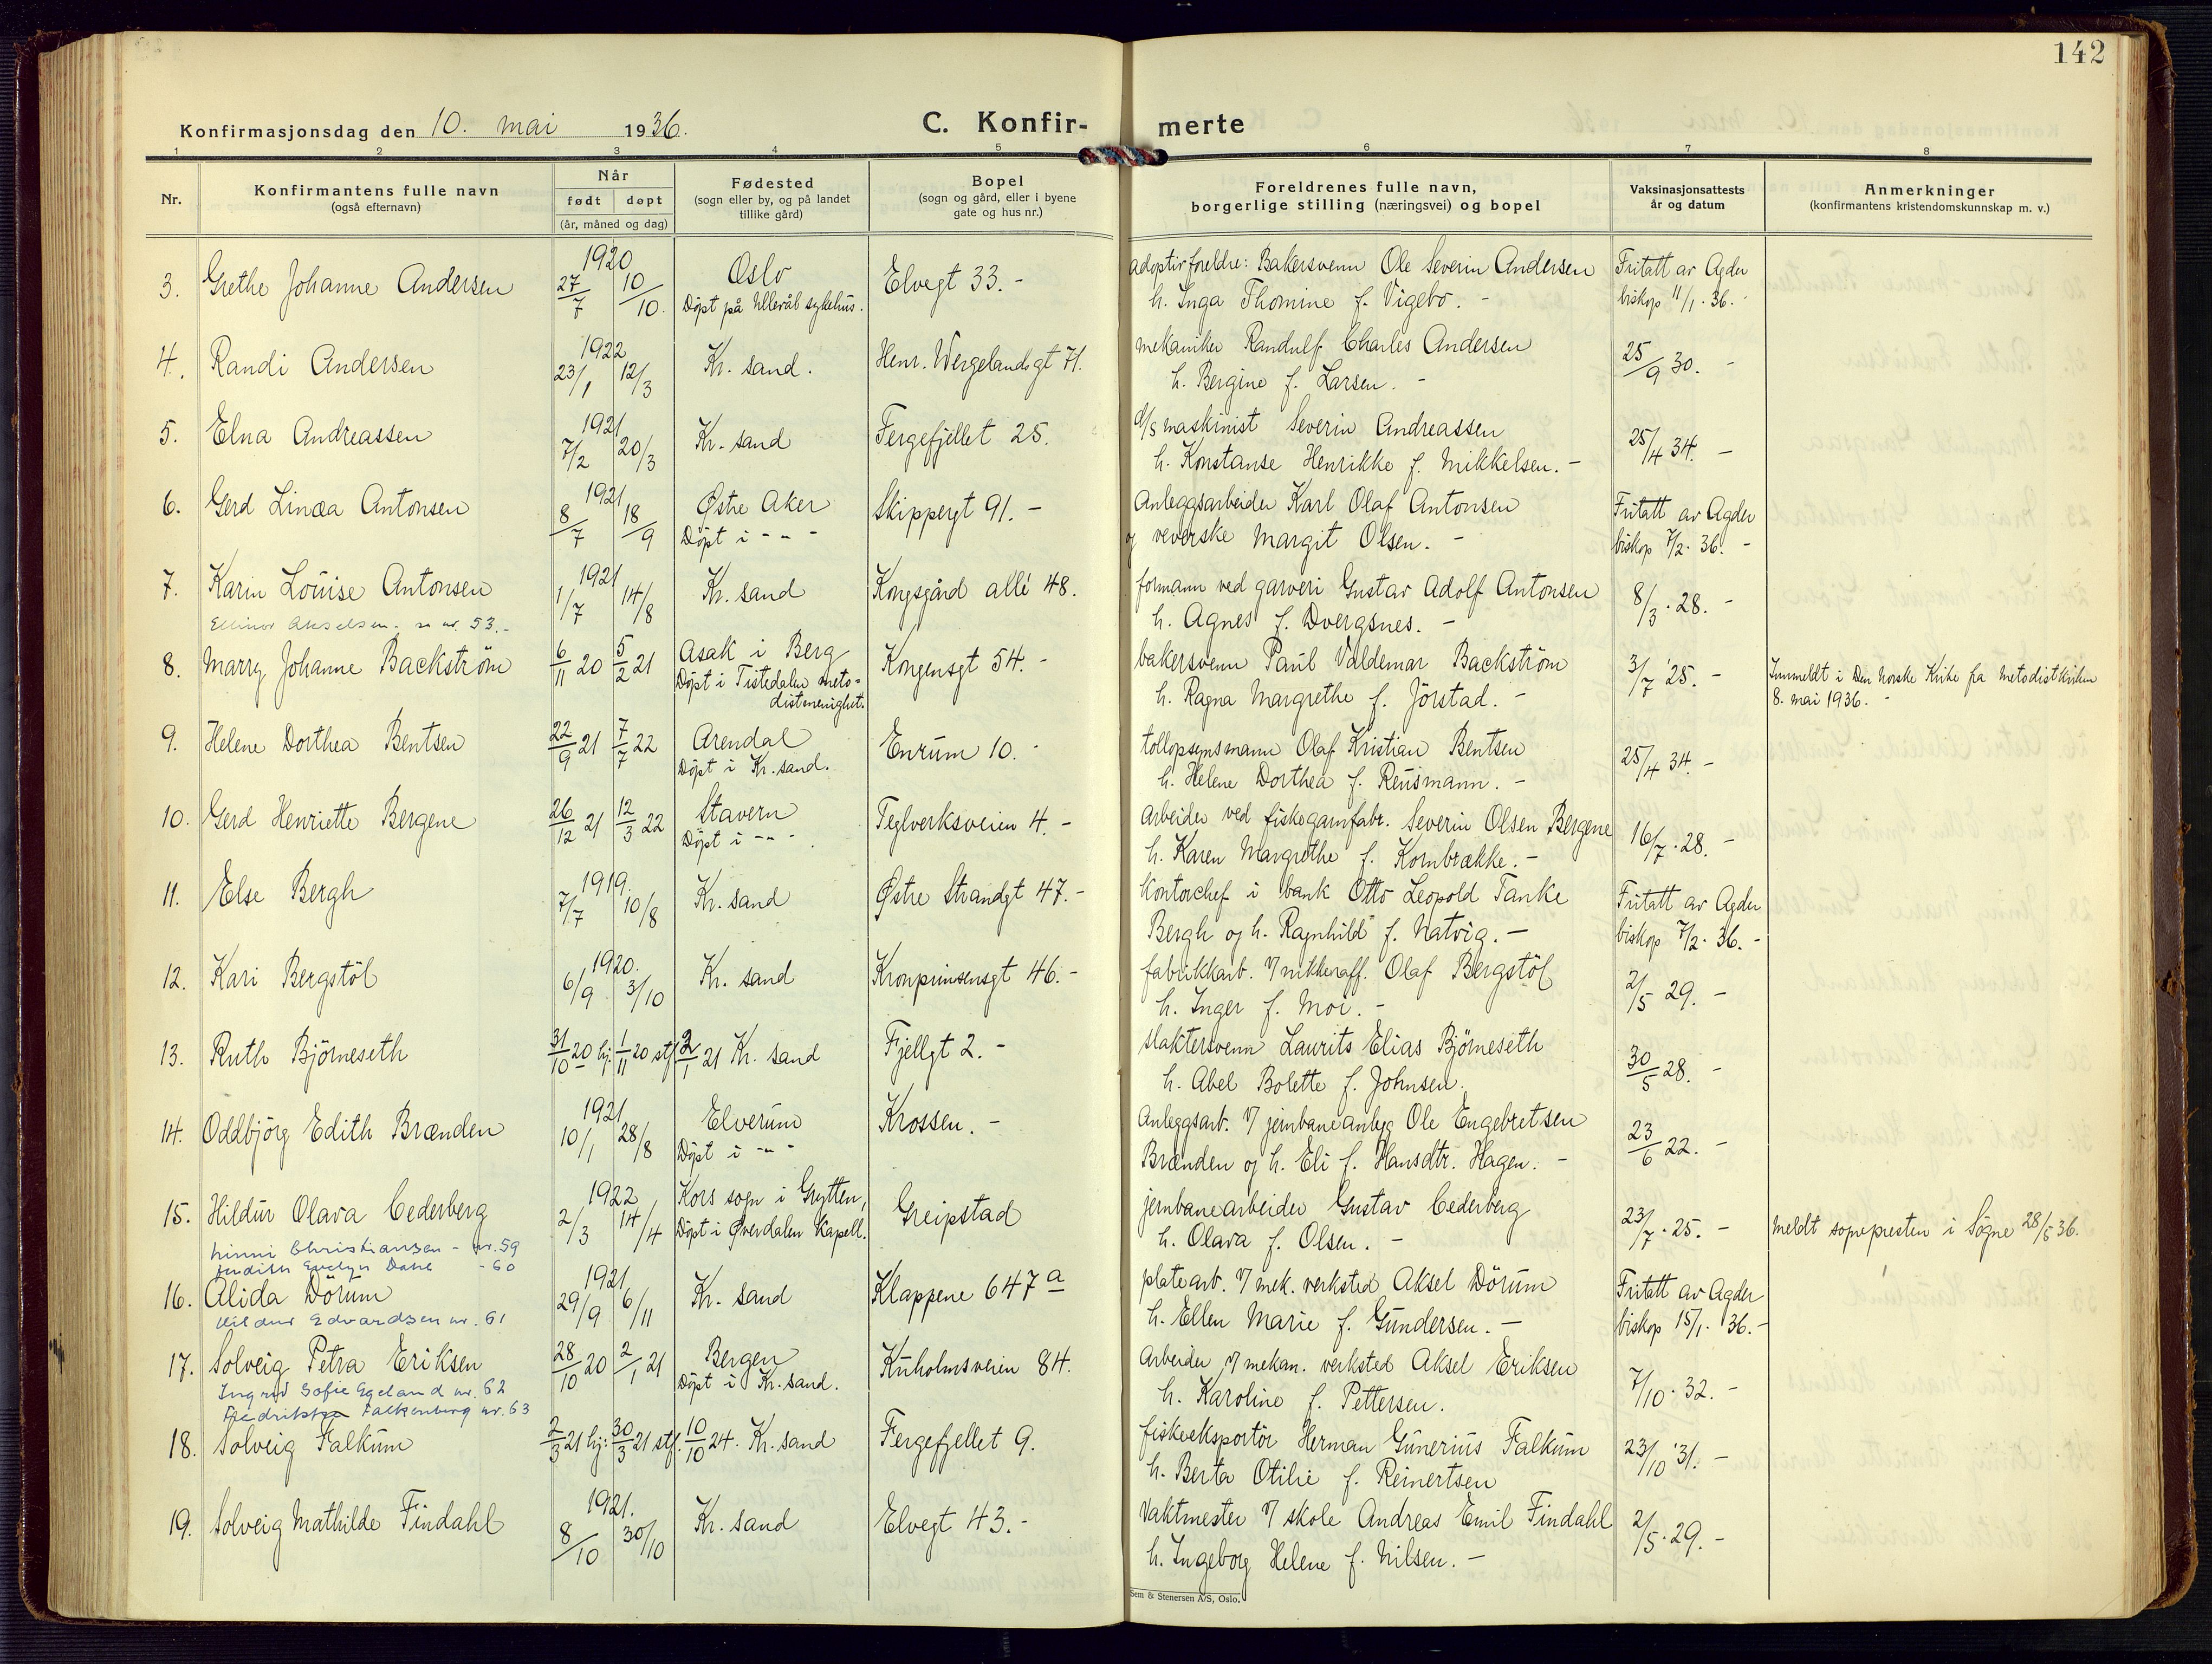 142
Konfirmasjonsdag den 10. mai 1936.
C. Konfir-
merte
1 2 3 4 5 6 7 8
Nr.
Konfirmantens fulle navn
(også efternavn)
Når
født døpt
(år, måned og dag)
Fødested
(sogn eller by, og på landet
tillike gård)
Bopel
(sogn og gård, eller i byene
gate og hus nr.)
Foreldrenes fulle navn,
borgerlige stilling (næringsvei) og bopel
Vaksinasjonsattests
år og datum
Anmerkninger
(konfirmantens kristendomskunnskap m. v.)
3. Grethe Johanne Andersen 1920 27/7 10/10. Oslo Elvegt 33.- adoptivforeldre: Bakersvenn Ole Severin Andersen Fritatt av Agder
Døpt på Ullevål sykehus. h. Inga Thomine f. Vigebo. - biskop 11/1. 36. -
4. Randi Andersen 1922 23/1 12/3 Kr. sand. Henr. Wergelandsgt 71. mekaniker Randulf Charles Andersen 25/9 30. -
h. Bergine f. Larsen. -
5. Elna Andreassen 1921 7/2 20/3 Kr. sand Fergefjellet 25. d/s maskinist Severin Andreassen 25/4 34. -
h. Konstanse Henrikke f. Mikkelsen. -
6. Gerd Linæa Antonsen 1921 8/7 18/9 Østre Aker Skippergt 91. - Anleggsarbeider Karl Olaf Antonsen Fritatt av Agder
Døpt i - " - og veverske Margit Olsen. - biskop 7/2. 36. -
7. Karin Louise Antonsen 1921 1/7 14/8 Kr. sand Kongsgård allé 48. formann ved garveri Gustav Adolf Antonsen 8/3. 28. -
Ellinor Akselsen - se nr. 53. - h. Agnes f. Dvergsnes. -
8. Marry Johanne Backström 6/11 20 5/2 21 Asak i Berg Kongensgt 54. - bakersvenn Paul Valdemar Backström 3/7 '25. - Innmeldt i Den norske Kirke fra Metodistkirken
Døpt i Tistedalen meto-
distmenighet. h. Ragna Margrethe f. Jörstad. - 8. mai 1936. -
9. Helene Dorthea Bentsen 22/9 21 7/7 22 Arendal Enrum 10. - tollopsynsmann Olaf Kristian Bentsen 25/4 34. -
Døpt i Kr. sand. h. Helene Dorthea f. Reusmann. -
10. Gerd Henriette Bergene 26/12 21 12/3 22 Stavern Teglverksveien 4. - Arbeider ved fiskegarnfabr. Severin Olsen Bergene 16/7. 28. -
Døpt i - " - h. Karen Margrethe f. Kornbrække. -
11. Else Bergh 1919. 7/7 10/8 Kr. sand Østre Strandgt 47. - Kontorchef i bank Otto Leopold Tanke Fritatt av Agder
Bergh og h. Ragnhild f. Natvig. - biskop 7/2. 36. -
12. Kari Bergstöl 1920. 6/9. 3/10 Kr. sand Kronprinsensgt 46. - fabrikkarb. v/ nikkelraff. Olaf Bergstöl 2/5 29. -
h. Inger f. Moi. -
13. Ruth Björneseth 31/10 20 hj. 1/11 20 stf. 2/1 21 Kr. sand Fjellgt 2. - slaktersvenn Laurits Elias Björneseth 30/5 28. -
h. Abel Bolette f. Johnsen.
14. Oddbjörg Edith Brænden 1921 10/1 28/8 Elverum Krossen. - Anleggsarb. v/ jernbaneanlegg Ole Engebretsen 23/6 22. -
Døpt i - " - Brænden og h. Eli f. Hansdtr. Hagen. -
15. Hildur Olava Cederberg 1922 2/3 14/4 Kors sogn i Grytten, Greipstad jernbanearbeider Gustav Cederberg 23/7. 25. - meldt sognepresten i Sögne 28/5 36.
Døpt i Øverdalen Kapell. h. Olava f. Olsen. -
Minni Christiansen - nr. 59
Judith Evelyn Dahl - 60
16. Alida Dörum 1921 29/9 6/11 Kr. sand Klappene 647 a platearb. v/ mek. verksted Aksel Dörum Fritatt av Agder
Hildur Edvardsen nr. 61 h. Ellen Marie f. Gundersen. - biskop 15/1. 36. -
17. Solveig Petra Eriksen 28/10 20 2/1 21 Bergen Kuholmsveien 84. Arbeider v/ mekan. verksted Aksel Eriksen 7/10. 32. -
Døpt i Kr. sand. h. Karoline f. Pettersen.
Ingrid Sofie Egeland nr. 62
Fredrikke Falkenberg nr. 63
18. Solveig Falkum 2/3 21 hj: 30/3 21 stf. 10/10 24. Kr. sand Fergefjellet 9. fiskeeksportör Herman Gunerius Falkum 23/10 '31. -
h. Berta Otilie f. Reinertsen
19. Solveig Mathilde Findahl 1921. 8/10 30/10 Kr. sand Elvegt 43. - Vaktmester v/ skole Andreas Emil Findahl 2/5. 29. -
h. Ingeborg Helene f. Nilsen. -
Sem & Stenersen A/S, Oslo.